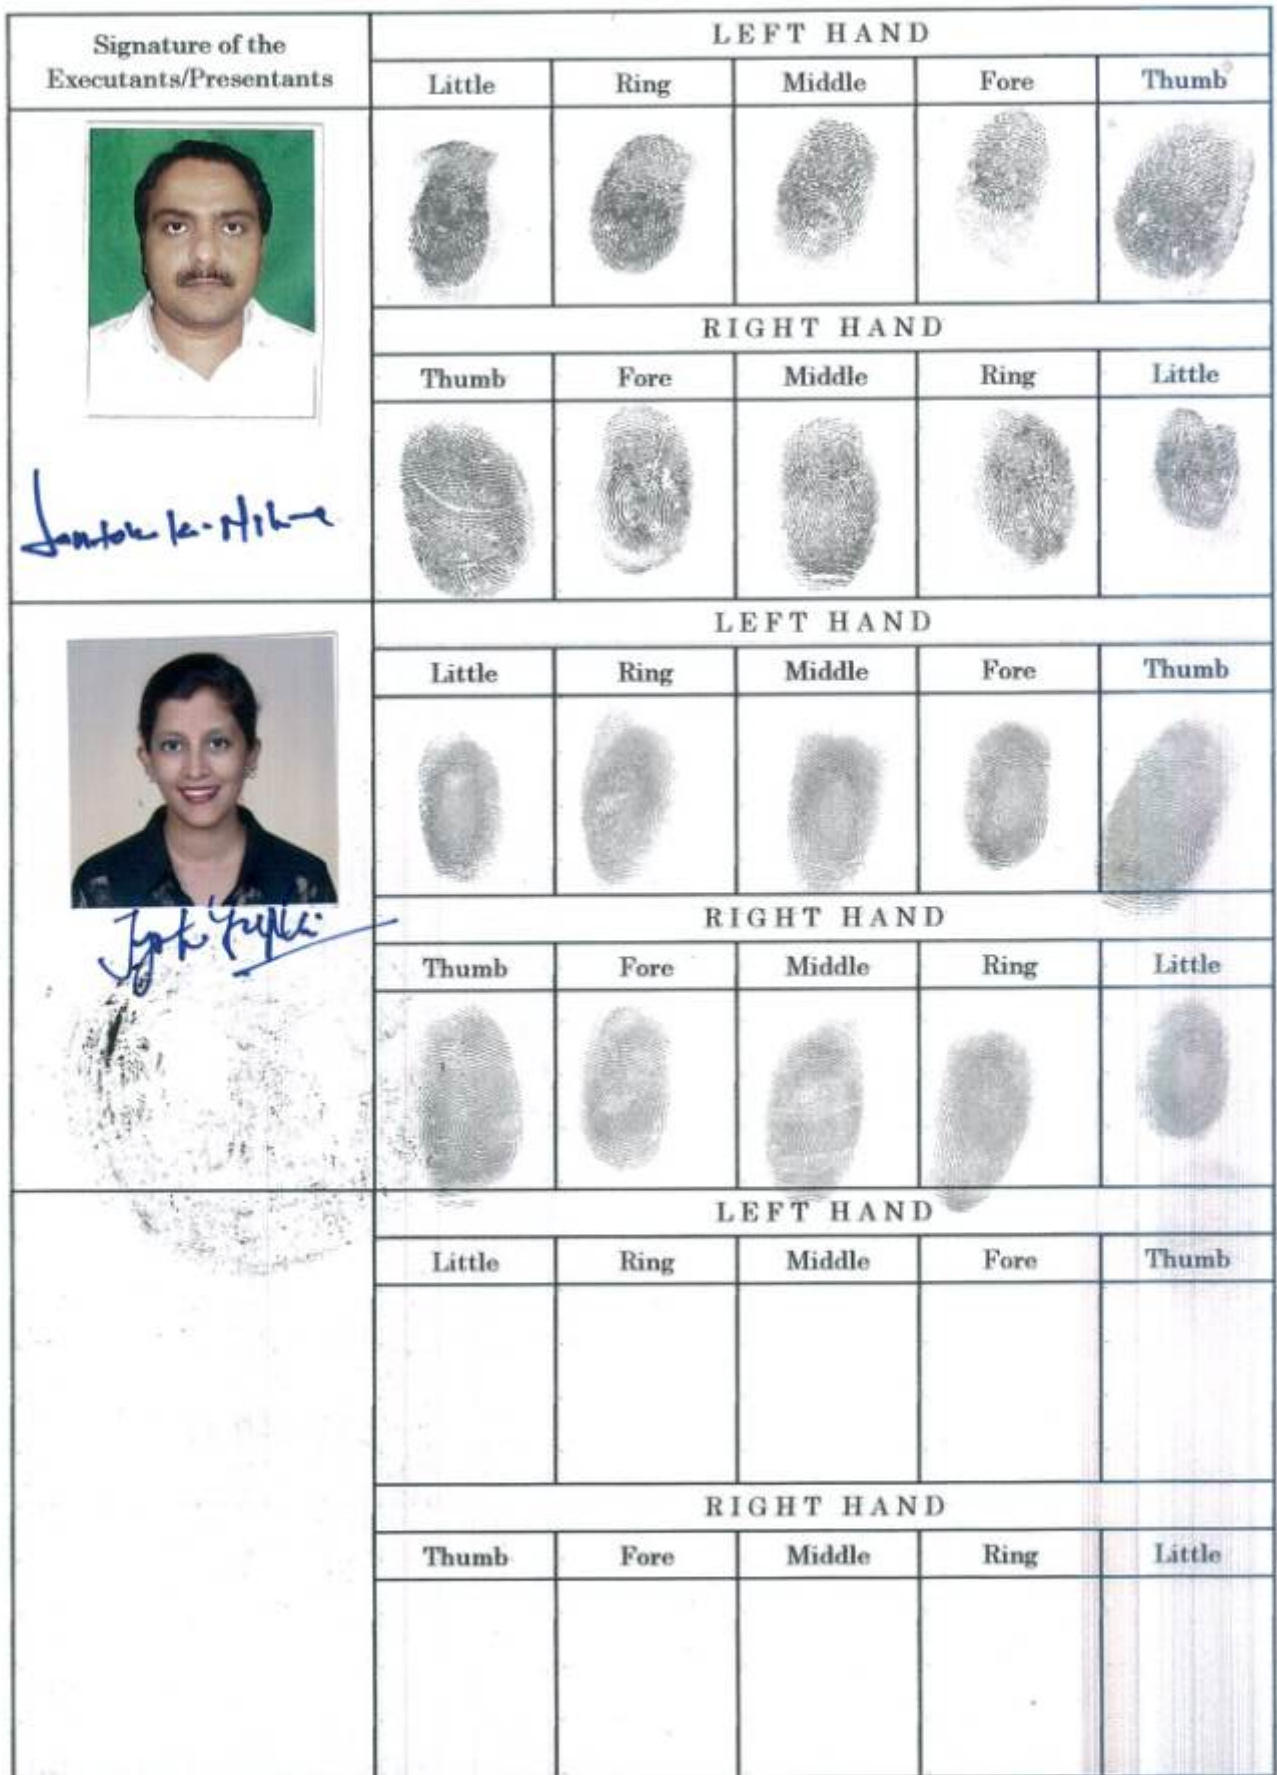 Signature of the
Executants/Presentants
LEFT HAND
Little Ring Middle Fore Thumb
RIGHT HAND
Thumb Fore Middle Ring Little
LEFT HAND
Little Ring Middle Fore Thumb
RIGHT HAND
Thumb Fore Middle Ring Little
LEFT HAND
Little Ring Middle Fore Thumb
RIGHT HAND
Thumb Fore Middle Ring Little